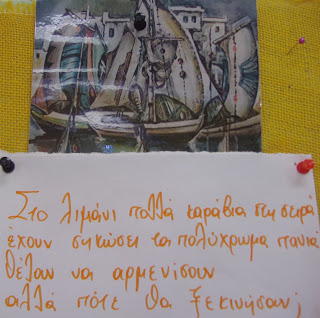 Στο λιμάνι πολλά καράβια στη σειρά
έχουν σηκώσει τα πολύχρωμα πανιά
θέλουν να αρμενίσουν
αλλά πότε θα ξεκινήσουν;